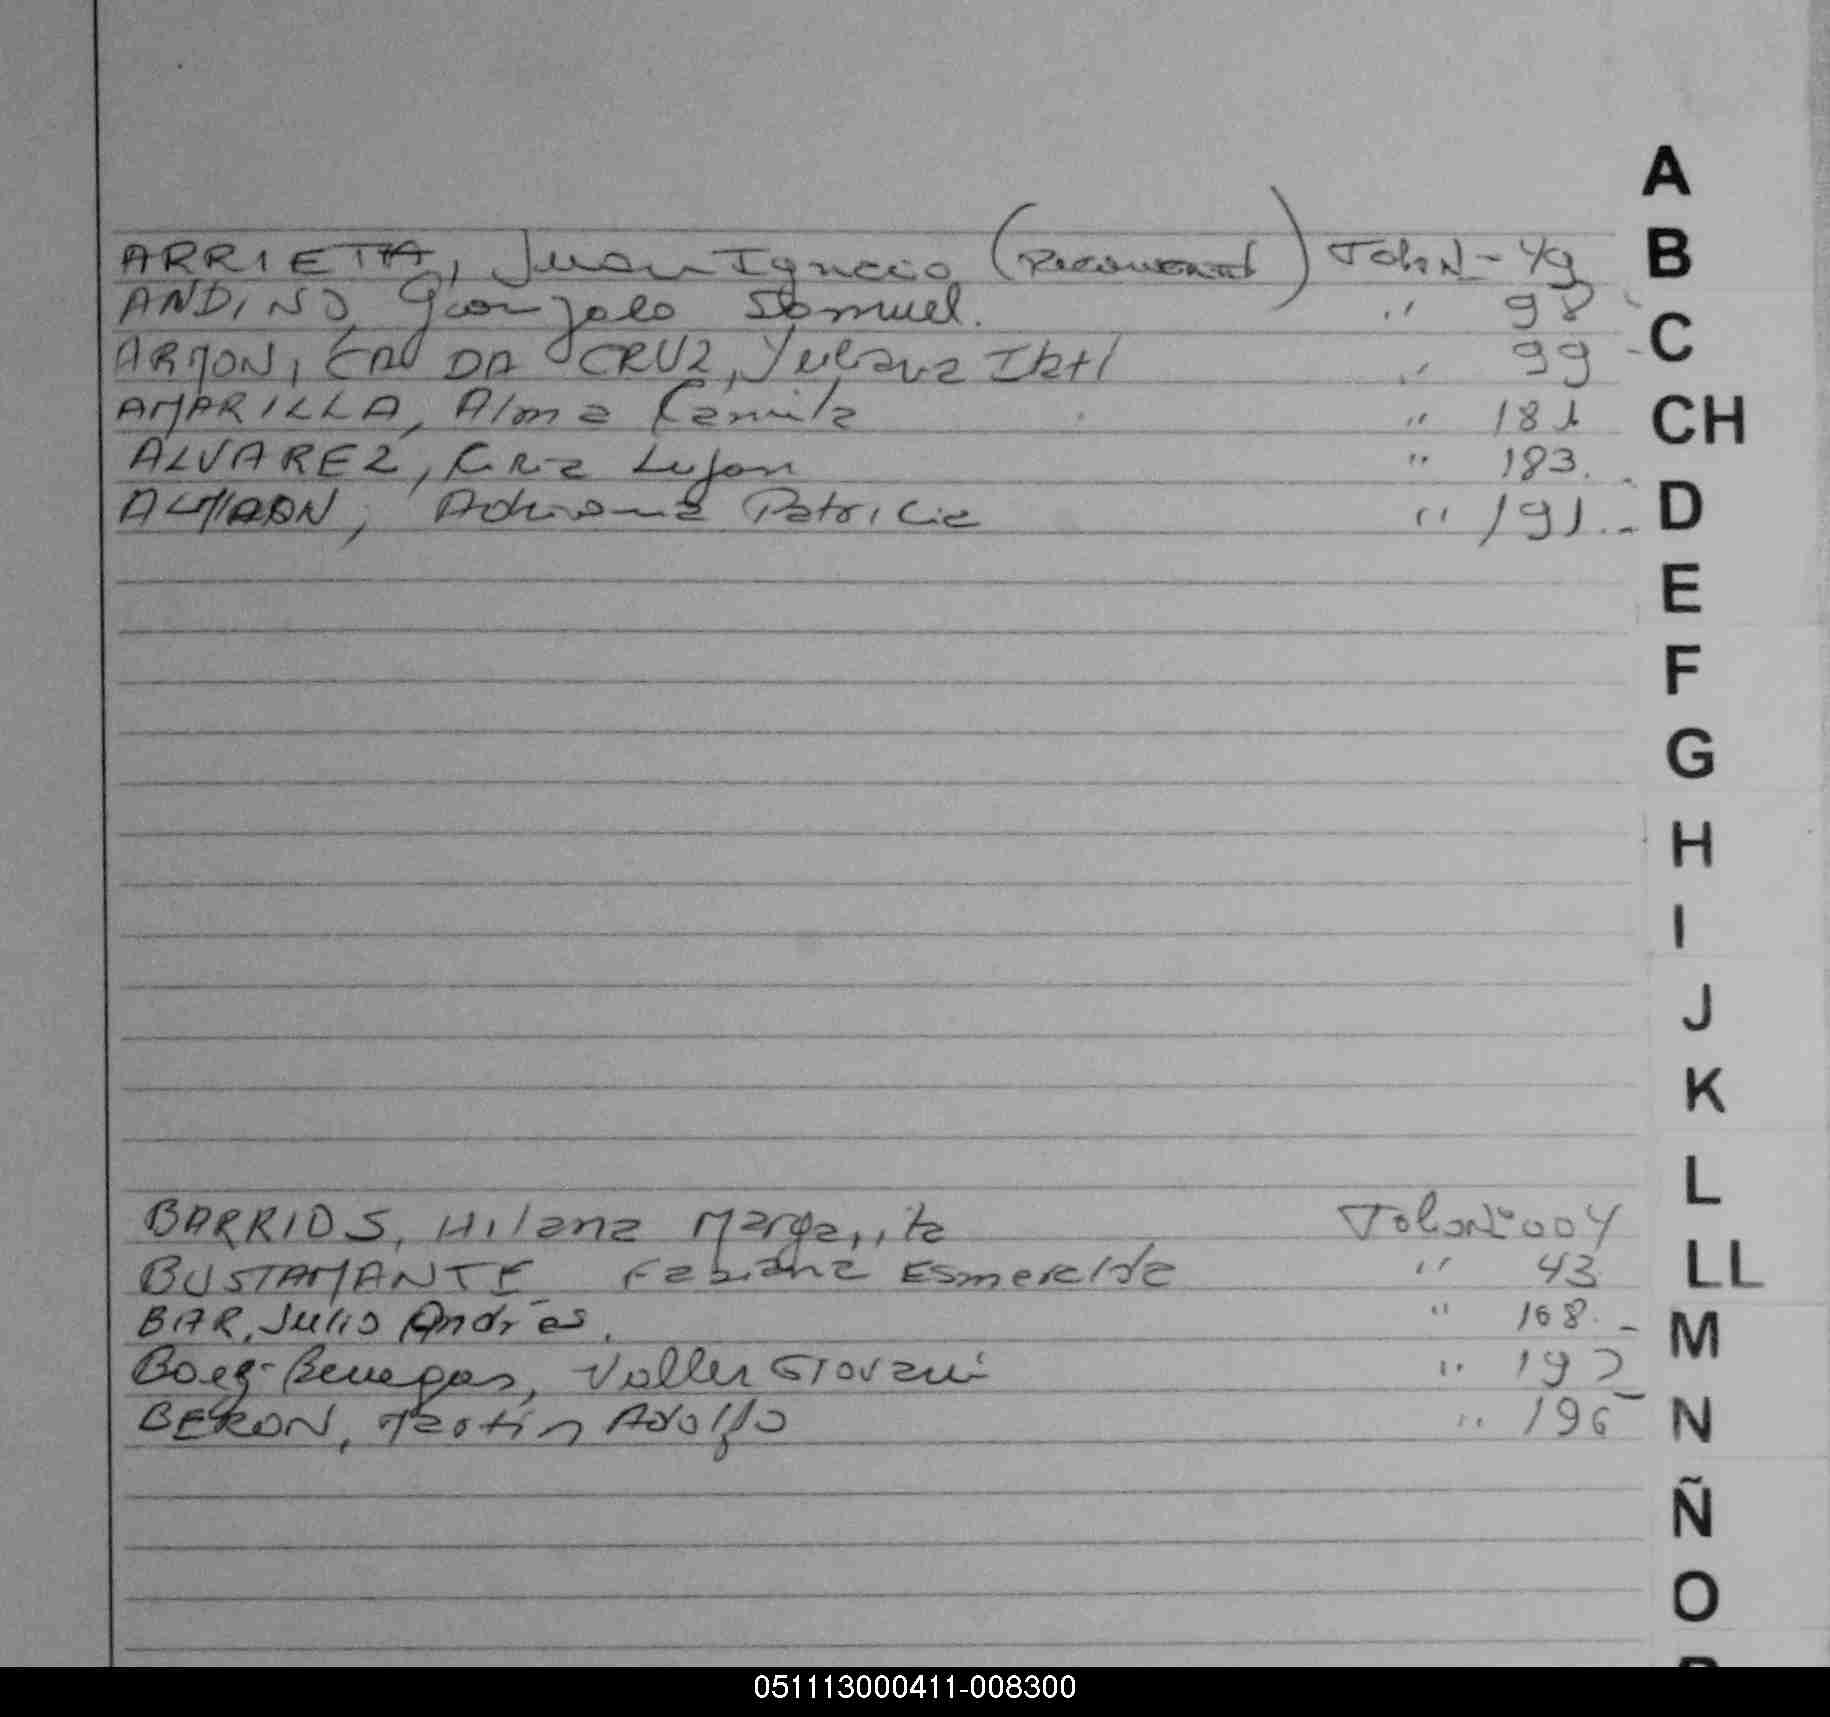 A
ARRIETA, Juan Ignacio (Reconocimt) Folio N- 49
B
ANDINO, Gonzalo Samuel. " 98
ARMON, DA CRUZ, " 99 -
C
AMARILLA, Alma Camila " 181
CH
ALVAREZ, Lujan " 183.
ALMIRON, Adriana Patricia " 191.-
D
E
F
G
H
I
J
K
L
BARRIOS, Hilana Margarita Folio Nº 004
BUSTAMANTE Fabiana Esmeralda " 43
LL
BAR, Julio Andrés. " 168.-
M
Boez-Benegas, Valter Giovani " 192
BERON, Martin Adolfo " 196
N
Ñ
O
051113000411-008300